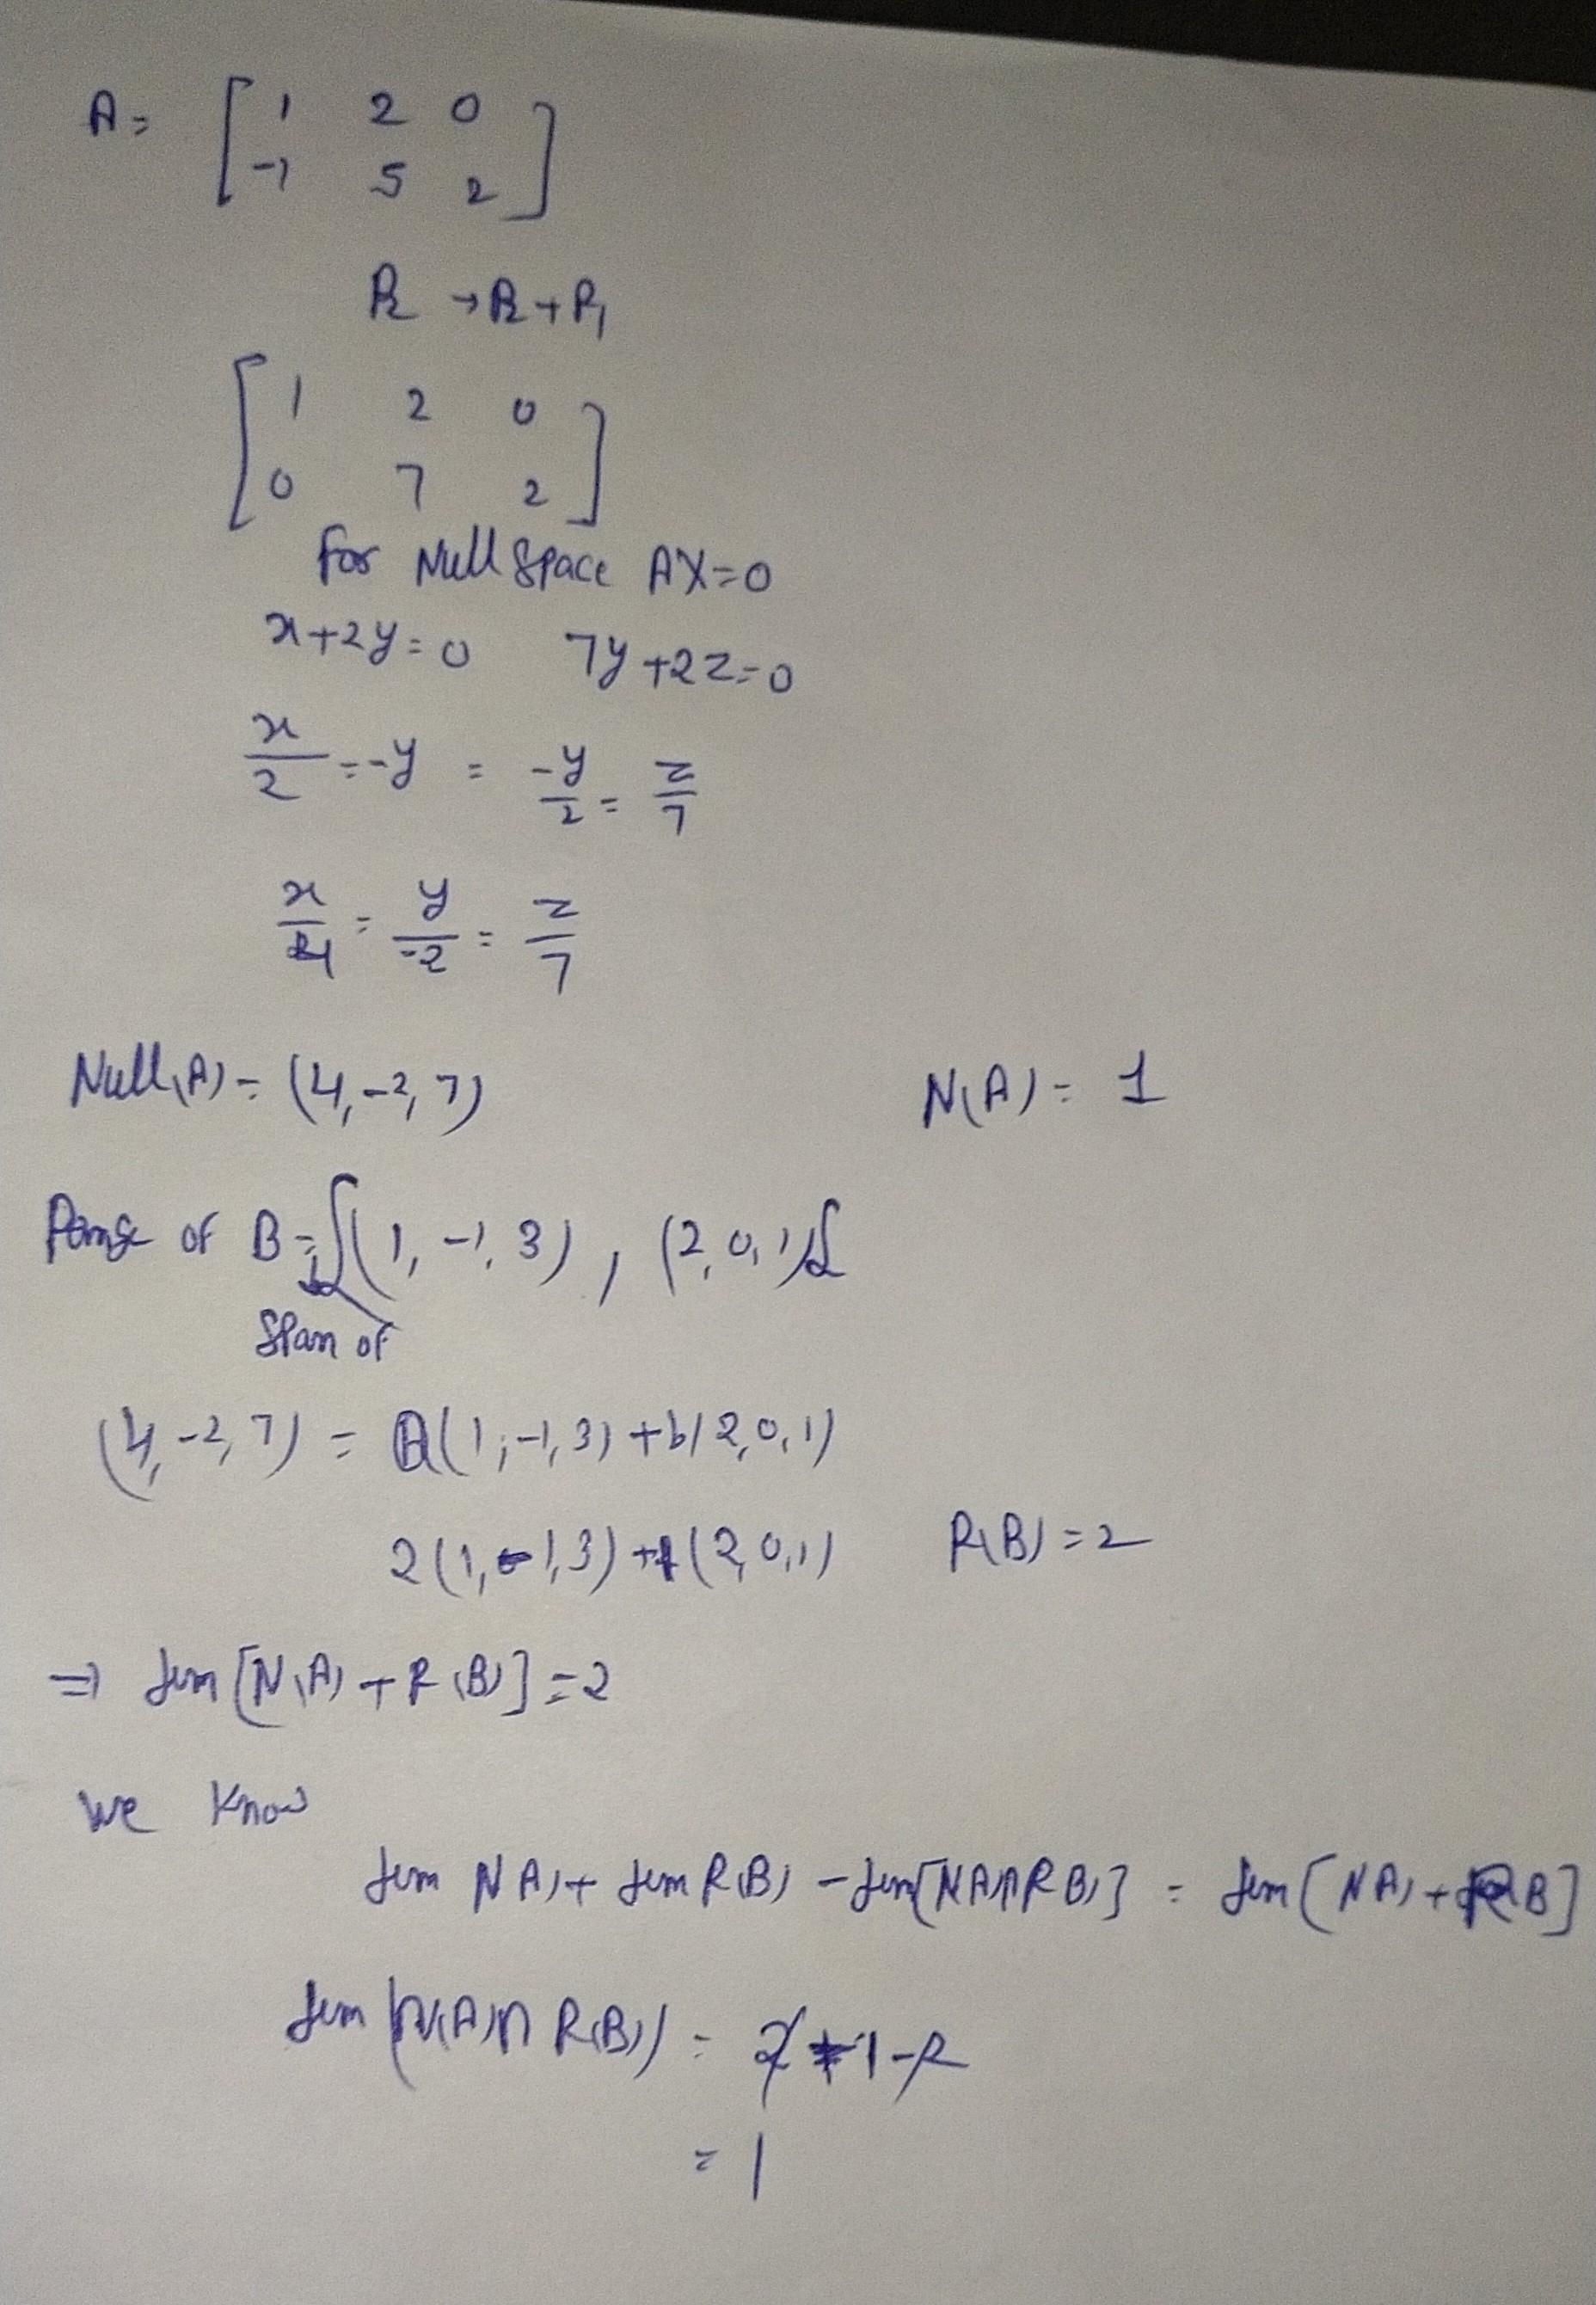 A = [ 1 2 0
-1 5 2 ]
R2 → R2 + R1
[ 1 2 0
0 7 2 ]
For Null Space AX=0
x+2y=0 7y+2z=0
x/2 = -y = -y/2 = z/7
x/4 = y/-2 = z/7
Null(A) = (4,-2,7) N(A) = 1
Range of B = {(1,-1,3), (2,0,1)}
Span of
(4,-2,7) = a(1,-1,3) + b(2,0,1)
2(1,-1,3) + 1(2,0,1) R(B) = 2
⇒ dim [N(A) + R(B)] = 2
we know
dim N(A) + dim R(B) - dim[N(A)∩R(B)] = dim [N(A) + R(B]
dim (N(A)∩R(B)) = 2+1-2
= 1